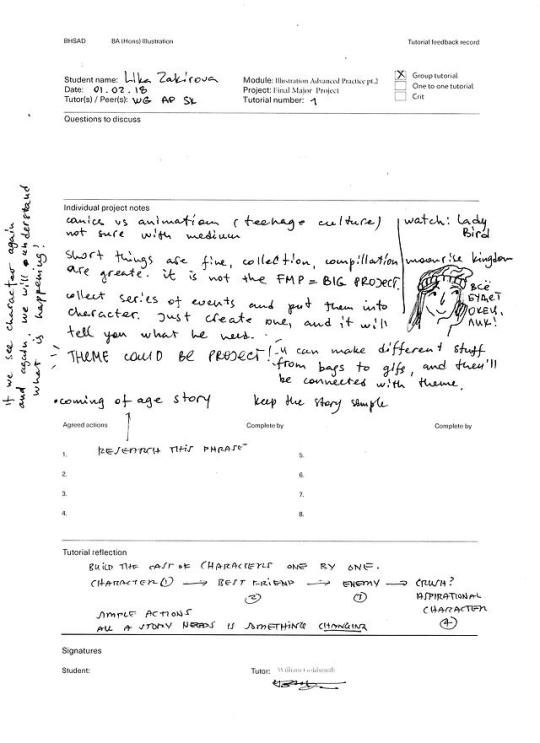 BHSAD BA (Hons) Illustration Tutorial feedback record
Student name: Lika Zakirova
Date: 01.02.18
Tutor(s) / Peer(s): WG AP SK
Module: Illustration Advanced Practice pt.2
Project: Final Major Project
Tutorial number: 1
X Group tutorial
One to one tutorial
Crit
Questions to discuss
Individual project notes
comics vs animation (teenage culture)
not sure with medium
watch: Lady
Bird
moonrise kingdom
short things are fine, collection, compillation
are greate. it is not the FMP = BIG PROJECT.
collect series of events and put them into
character. Just create one, and it will
tell you what he need.
ВСЁ
БУДЕТ
ОКЕЙ,
ЛИК!
THEME COULD BE PROJECT! - u can make different stuff
from bags to gifs, and they'll
be connected with theme.
• coming of age story
keep the story simple
If we see character again
and again, we will understand
what is happening!
Agreed actions Complete by Complete by
1. RESEARCH THIS PHRASE
2.
3.
4.
5.
6.
7.
8.
Tutorial reflection
BUILD THE CAST OF CHARACTERS ONE BY ONE.
CHARACTER ① → BEST FRIEND → ENEMY → CRUSH?
② ③ ASPIRATIONAL
CHARACTER
④
SIMPLE ACTIONS
ALL A STORY NEEDS IS SOMETHING CHANGING
Signatures
Student: Tutor: William Goldsmith